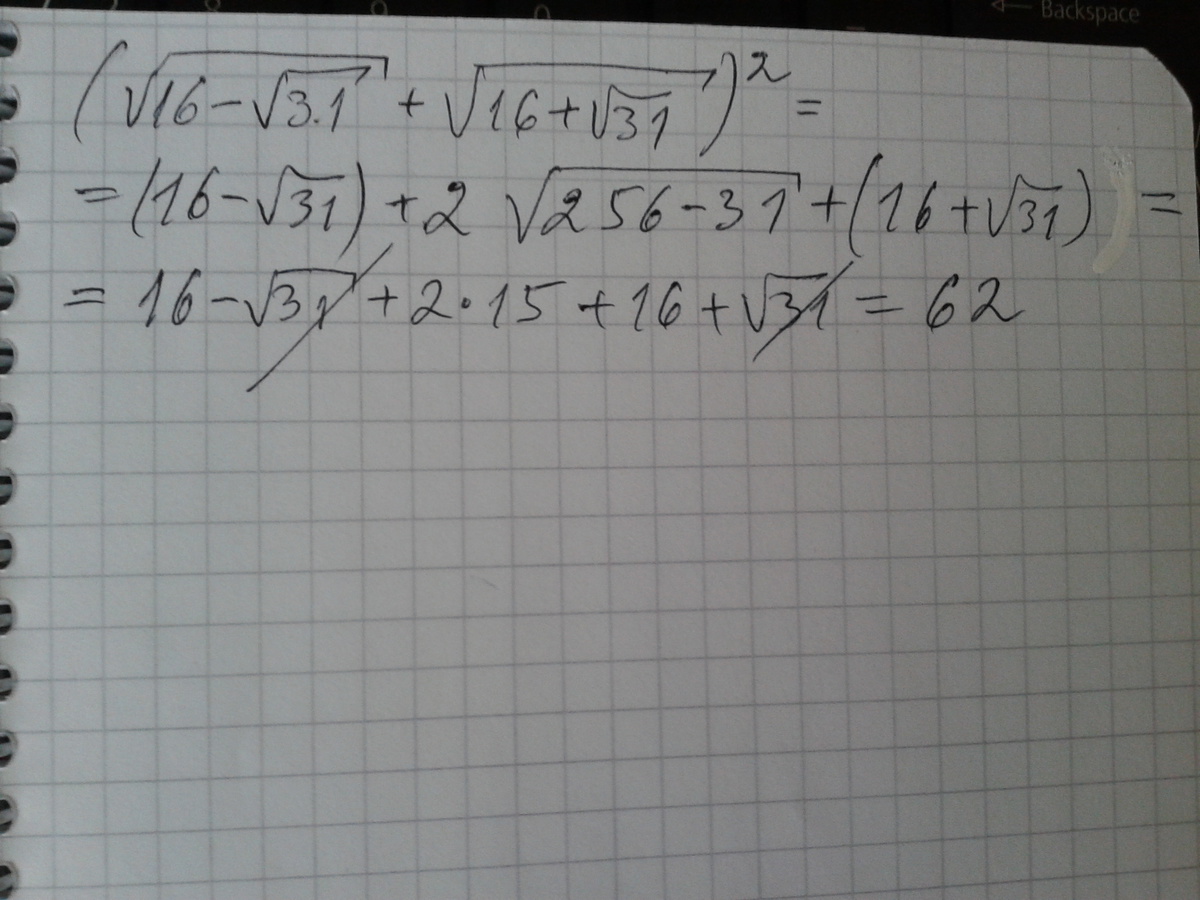 ← Backspace
(√(16-√3.1) + √(16+√31))² =
= (16-√31) + 2 √(256-31) + (16+√31) =
= 16-√31 + 2·15 + 16 + √31 = 62